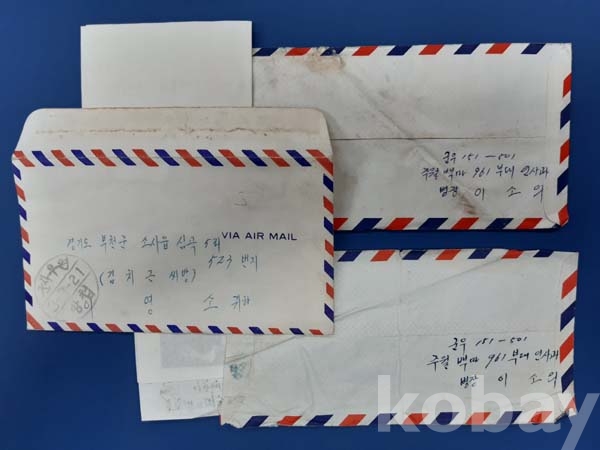 군우 151-501
주월 백마 961 부대 인사과
병장 이 소 위
VIA AIR MAIL
경기도 부천군 소사읍 심곡 5리
523 번지
(김 치 근 씨방)
영 소 귀하
군우 151-501
주월 백마 961 부대 인사과
병장 이 소 위
kobay